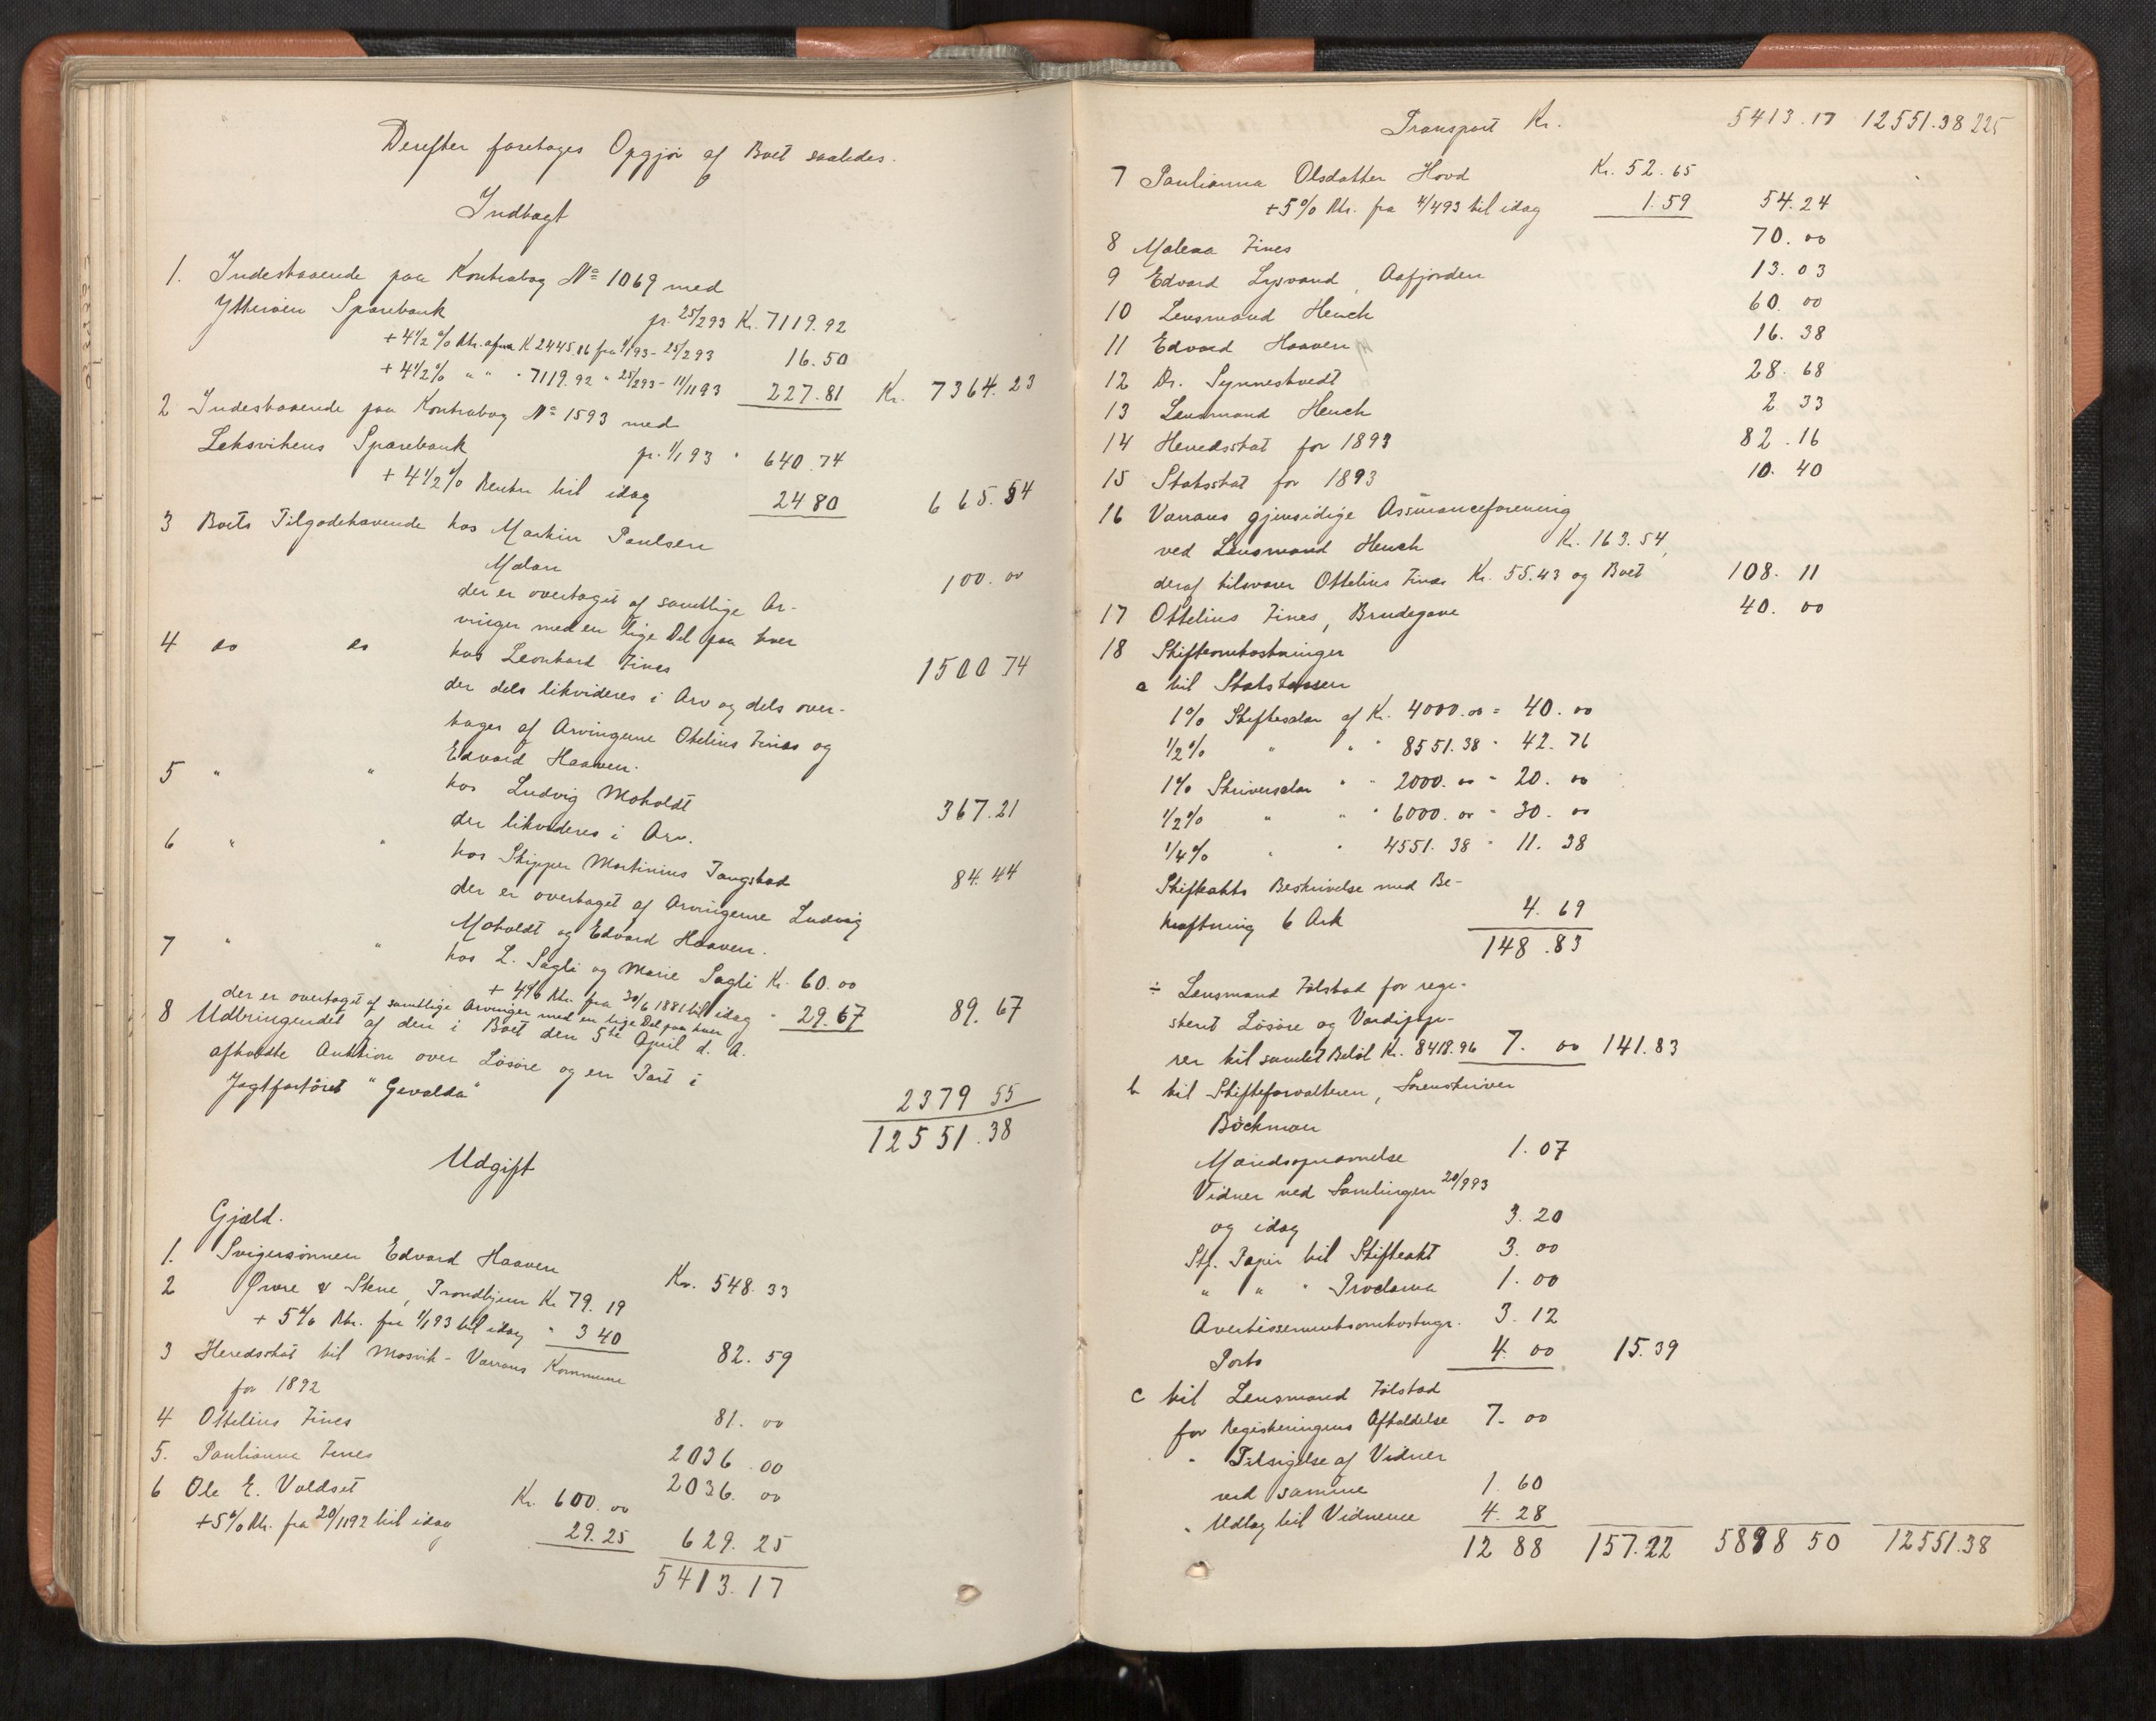 Derefter foretages Opgjør af Boet saaledes.
Indtægt
1. Indestaaende paa Kontrabog No 1069 med
Ytterøen Sparebank pr. 25/2 93 Kr. 7119.92
+ 4 1/2 % Rtr. af Kr 2445.86 fra 1/1 93 - 25/2 93 16.50
+ 4 1/2 % " " " 7119.92 " 25/2 93 - 11/11 93 227.81 Kr. 7364.23
2 Indestaaende paa Kontrabog No 1593 med
Leksvikens Sparebank pr. 1/1 93 " 640.74
+ 4 1/2 % Renter til idag 24 80 665.54
3 Boets Tilgodehavende hos Martin Paulsen
Melan 100.00
der er overtaget af samtlige Ar-
vinger med en lige Del paa hver
4 do do hos Leonhard Fines 1500 74
der dels likvideres i Arv og dels over-
tages af Arvingerne Otelius Fines og
Edvard Haaven.
5 " " hos Ludvig Moholdt 367.21
der likvideres i Arv.
6 " " hos Skipper Martinius Tangstad 84.44
der er overtaget af Arvingerne Ludvig
Moholdt og Edvard Haaven.
7 " " hos L. Sagli og Marie Sagli Kr. 60.00
+ 4% Rtr. fra 30/6 1881 til idag " 29.67 89.67
der er overtaget af samtlige Arvinger med en lige Del paa hver
8 Udbringendet af den i Boet den 5te April d. A.
afholdte Auktion over Løsøre og en Part i
Jagtfartøiet "Gevalda" 2379 55
12551.38
Udgift
Gjæld.
1. Svigersønnen Edvard Haaven Kr. 548.33
2 Øwre & Stene, Trondhjem Kr 79.19
+ 5% Rtr. fra 1/1 93 til idag " 3 40 82.59
3 Heredsskat til Mosvik-Værrans Kommune
for 1892 81.00
4 Ottelius Fines 2036.00
5. Paulianna Fines 2036.00
6 Ole E. Voldset Kr. 600.00
+5% Rtr. fra 20/11 92 til idag 29.25 629.25
5413.17
Transport Kr. 5413.17 12551.38 225
7 Paulianna Olsdatter Hovd Kr. 52.65
+5% Rtr. fra 4/4 93 til idag 1.59 54.24
8 Malena Fines 70.00
9 Edvard Lysvand, Aafjorden 13.03
10 Lensmand Heuch 60.00
11 Edvard Haaven 16.38
12 Dr. Synnestvedt 28.68
13 Lensmand Heuch 2.33
14 Heredsskat for 1893 82.16
15 Statsskat for 1893 10.40
16 Værrans gjensidige Assuranceforening
ved Lensmand Heuch Kr. 163.54,
deraf tilsvarer Ottelius Fines Kr. 55.43 og Boet 108.11
17 Ottelius Fines, Brudegave 40.00
18 Skifteomkostninger
a til Statskassen
1% Skiftesalær af Kr. 4000.00 = 40.00
1/2% " " " 8551.38 " 42.76
1% Skriversalær " " 2000.00 " 20.00
1/2% " " " 6000.00 " 30.00
1/4% " " 4551.38 " 11.38
Skifteakts Beskrivelse med Be-
kræftning 6 Ark 4.69
148.83
÷ Lensmand Følstad for regi-
streret Løsøre og Værdipapi-
rer til samlet Beløb Kr. 8418.96 7.00 141.83
b til Skifteforvalteren, Sorenskriver
Böckman
Mændsopnævnelse 1.07
Vidner ved Samlingen 20/9 93
og idag 3.20
Stf. Papir til Skifteakt 3.00
" " " Proclama 1.00
Avertissementsomkostngr. 3.12
Porto 4.00 15.39
c til Lensmand Følstad
for Registreringens Afholdelse 7.00
" Tilsigelse af Vidner
ved samme 1.60
" Udlæg til Vidnerne 4.28
12 88 157.22 5898 50 12551.38